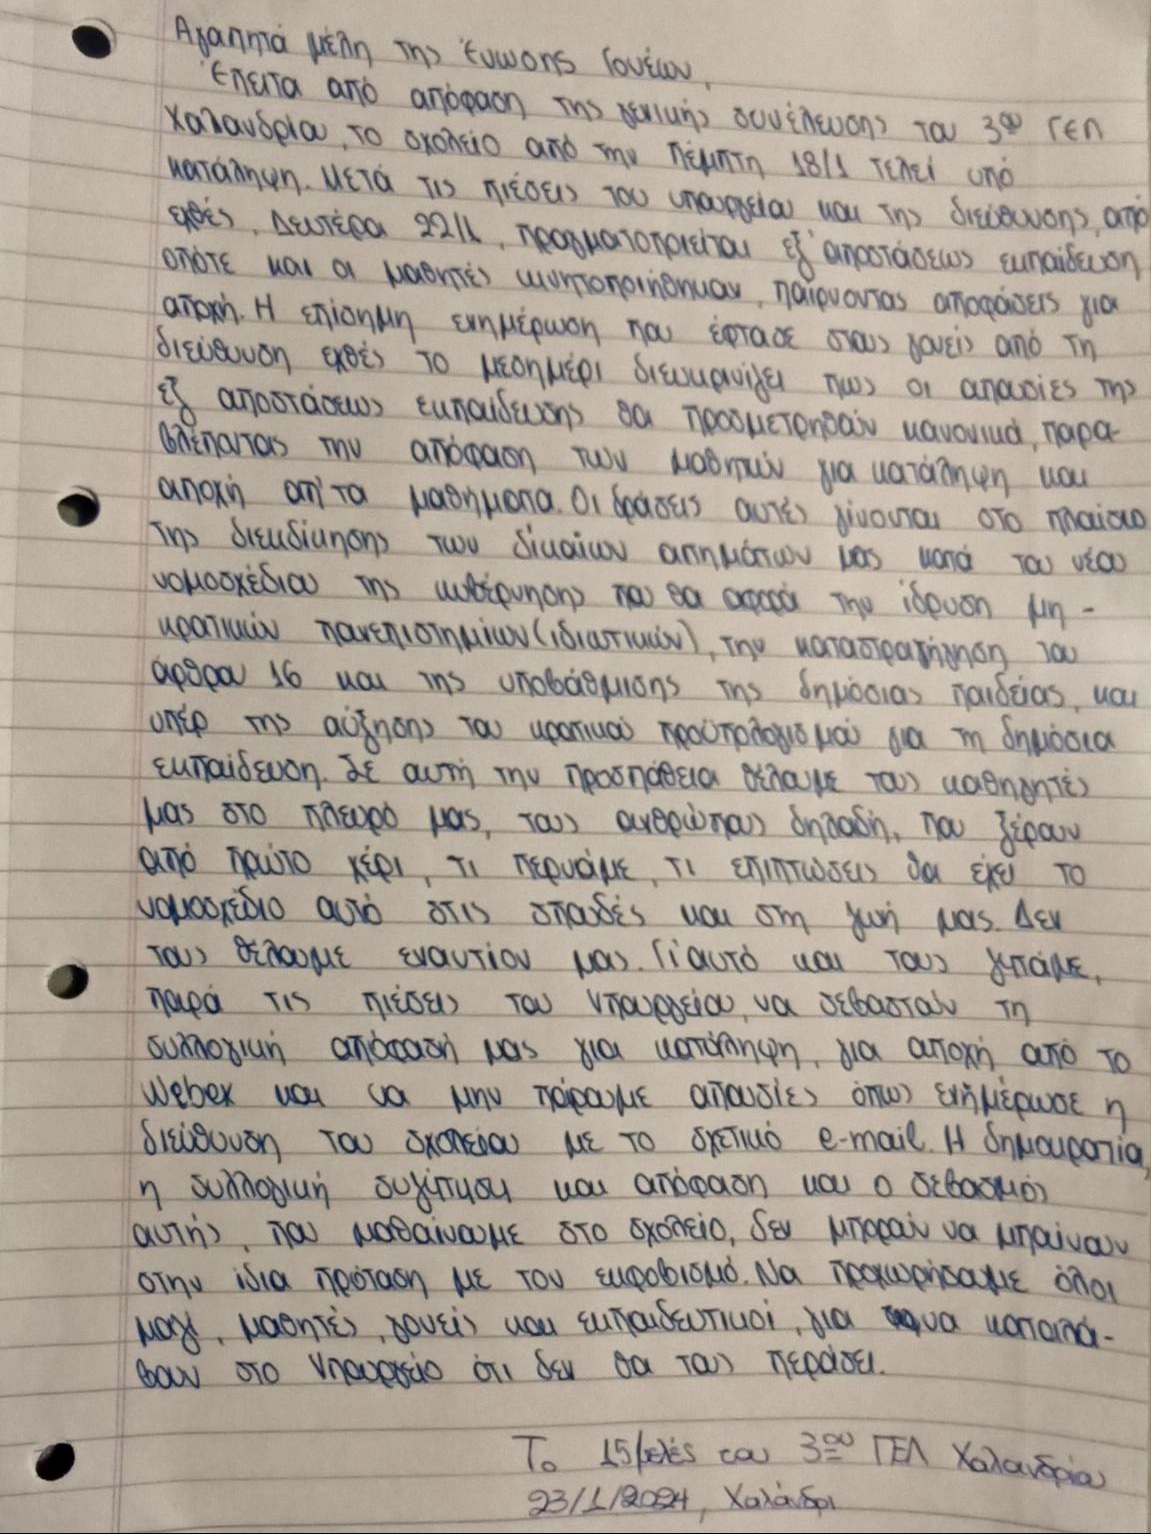 Αγαπητά μέλη της Ένωσης Γονέων,
Έπειτα από απόφαση της γενικής συνέλευσης του 3ου ΓΕΛ
Χαλανδρίου, το σχολείο από την Πέμπτη 18/1 τελεί υπό
κατάληψη. Μετά τις πιέσεις του υπουργείου και της διεύθυνσης, από
εχθές, Δευτέρα 22/1, πραγματοποιείται εξ' αποστάσεως εκπαίδευση
οπότε και οι μαθητές κινητοποιήθηκαν, παίρνοντας αποφάσεις για
αποχή. Η επίσημη ενημέρωση που έφτασε στους γονείς από τη
διεύθυνση εχθές το μεσημέρι διευκρινίζει πως οι απουσίες της
εξ αποστάσεως εκπαίδευσης θα προσμετρηθούν κανονικά, παρα-
βλέποντας την απόφαση των μαθητών για κατάληψη και
αποχή απ' τα μαθήματα. Οι δράσεις αυτές γίνονται στο πλαίσιο
της διεκδίκησης των δίκαιων αιτημάτων μας κατά του νέου
νομοσχέδιου της κυβέρνησης που θα αφορά την ίδρυση μη -
κρατικών πανεπιστημίων (ιδιωτικών), την καταστρατήγηση του
άρθρου 16 και της υποβάθμισης της δημόσιας παιδείας, και
υπέρ της αύξησης του κρατικού προϋπολογισμού για τη δημόσια
εκπαίδευση. Σε αυτή την προσπάθεια θέλουμε τους καθηγητές
μας στο πλευρό μας, τους ανθρώπους δηλαδή, που ξέρουν
από πρώτο χέρι, τι περνάμε, τι επιπτώσεις θα έχει το
νομοσχέδιο αυτό στις σπουδές και στη ζωή μας. Δεν
τους θέλουμε εναντίον μας. Γι'αυτό και τους ζητάμε,
παρά τις πιέσεις του Υπουργείου, να σεβαστούν τη
συλλογική απόφασή μας για κατάληψη, για αποχή από το
Webex και να μην πάρουμε απουσίες όπως ενημέρωσε η
διεύθυνση του σχολείου με το σχετικό e-mail. Η δημοκρατία,
η συλλογική συζήτηση και απόφαση και ο σεβασμός
αυτής, που μαθαίνουμε στο σχολείο, δεν μπορούν να μπαίνουν
στην ίδια πρόταση με τον εκφοβισμό. Να προχωρήσουμε όλοι
μαζί, μαθητές, γονείς και εκπαιδευτικοί, για να καταλά-
βουν στο Υπουργείο ότι δεν θα τους περάσει.
Το 15μελές του 3ου ΓΕΛ Χαλανδρίου
23/1/2024, Χαλάνδρι